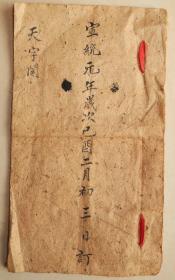 宣統元年歲次己酉二月初三日訂
天字閣